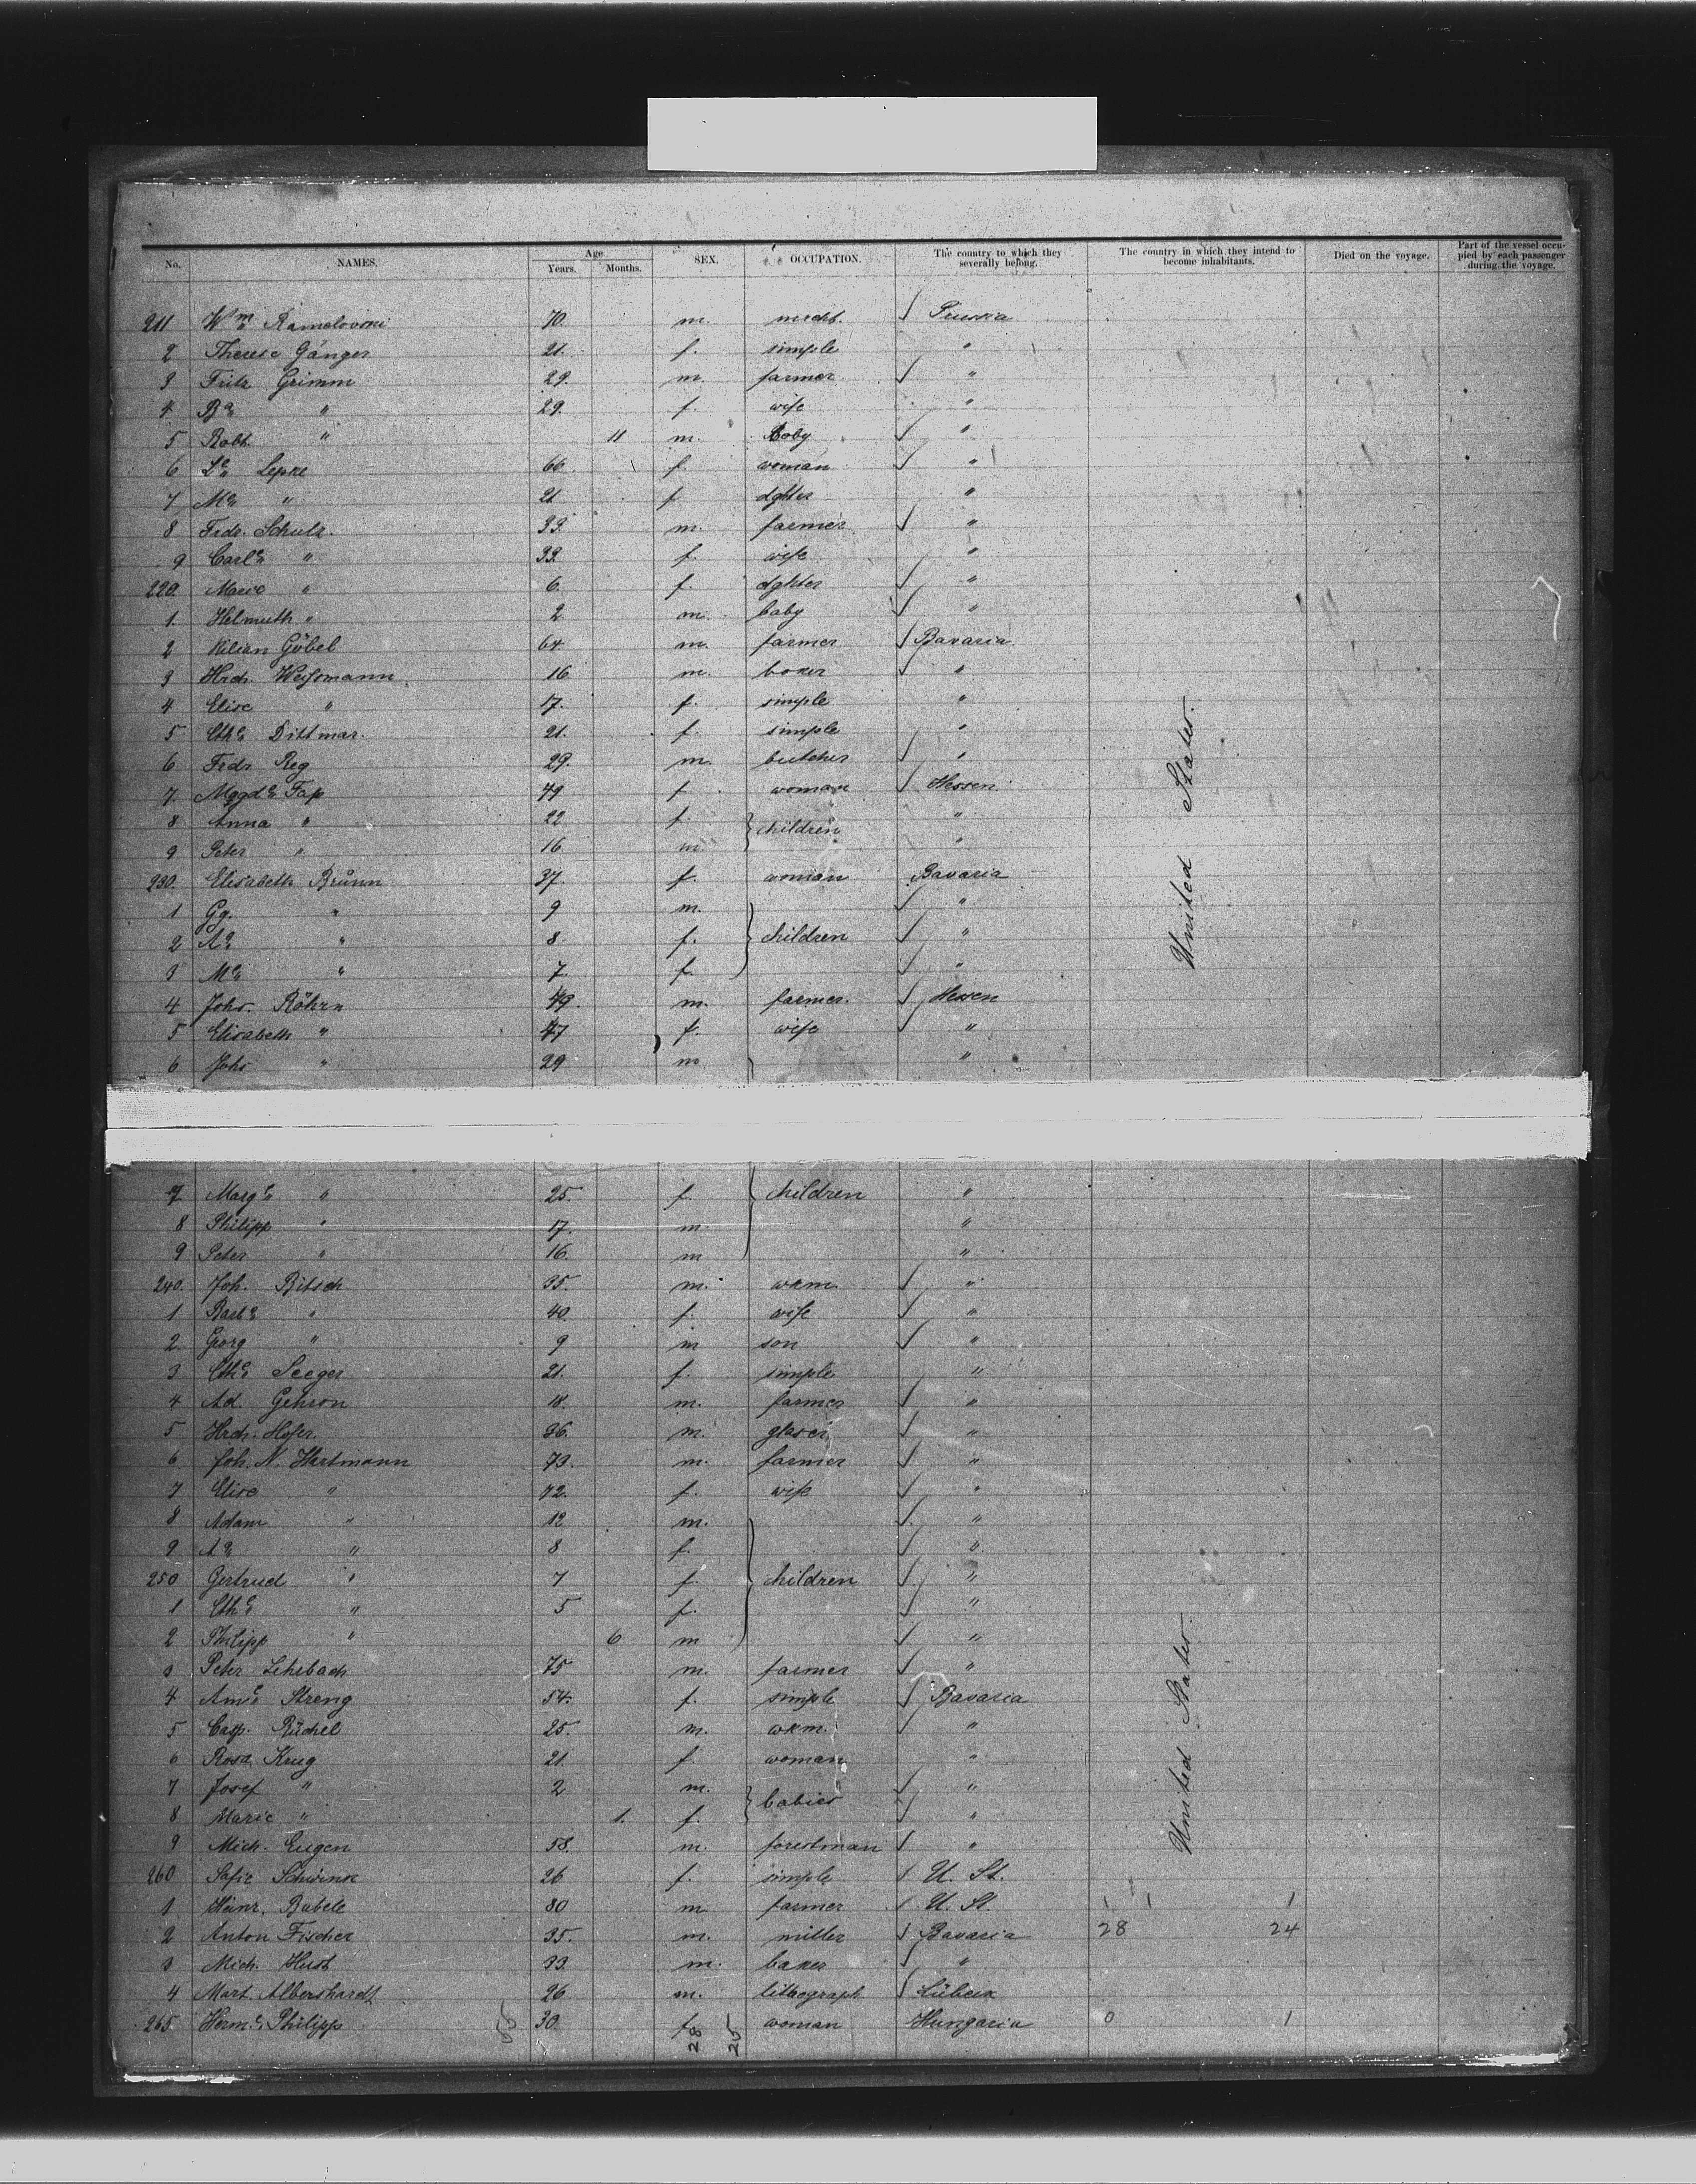 No. NAMES. Age Years. Months. SEX. OCCUPATION. The country to which they severally belong. The country in which they intend to become inhabitants. Died on the voyage. Part of the vessel occupied by each passenger during the voyage.
211 Wm 70. m. mercht. Prussia
2 Therese Gänger 21. f. simple "
3 Fritz Grimm 29. m. farmer "
4 Ba " 29. f. wife "
5 Robt " 11 m. baby "
6 Le Lepke 66 f. woman "
7 Ma " 21 f dghter "
8 Fedr. Schulz. 33. m. farmer "
9 Carle " 33. f. wife "
220. Marie " 6. f. dghter "
1. Helmuth " 2 m. baby "
2 Kilian Göbel 64 m. farmer Bavaria
3 Hrch. Weissmann 16 m. baker "
4 Elise " 17. f. simple "
5 Cthe Dittmar. 21. f. simple "
6 Fedr Reg 29. m. butcher "
7. Magde Fap 49 f woman Hessen
8 Anna " 22 f. children "
9 Peter " 16 m "
230. Elisabeth Brünn 37. f. woman Bavaria
1 Gg. " 9 m. "
2 Aa " 8. f. children "
3 Me " 7. f. "
4 Johs. Röhrn 49. m. farmer. Hessen
5 Elisabeth " 47 f. wife "
6 Johs " 29 m "
7 Marge " 25 f. children "
8 Philipp " 17. m. "
9 Peter " 16. m "
240. Joh. Bitsch 35. m. wkm. "
1 Barbe " 40 f. wife "
2 Georg " 9 m son "
3 Cthe Seeger 21. f. simple "
4 Ad. Gehron 18. m. farmer "
5 Hrch. Hofer. 36. m. "
6 Joh. N. Hartmann 73. m. farmer "
7 Elise " 72. f. wife "
8 Adam " 12 m. "
9 Aa " 8 f. "
250 Gertrud " 7 f. children "
1 Cthe " 5 f. "
2 Philipp " 6 m "
3 Peter Lehrbach 75 m. farmer "
4 Streng 54. f. simple Bavaria
5 Casp. Rüchel 25. m. wkm. "
6 Rosa Krug 21. f. woman "
7 Josef " 2 m. babies "
8 Marie " 1. f. "
9 Mich. Eugen 58. m. forestman "
260 26 f. simple U. St.
1 Heinr. Babele 80 m farmer U. St. 1 1 1
2 Anton Fischer 35. m. miller Bavaria 28 24
3 Mich. Hust 33. m. baker "
4 Mart. Albershardt 26 m. lithograph Lübeck
265. Herme Philipp 30. f. woman Hungaria 0 1
55 28 25
United States.
United States.